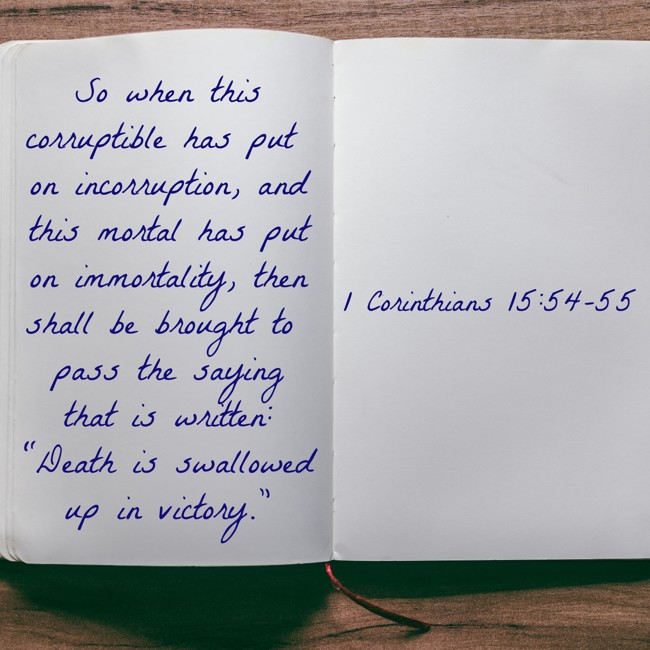 So when this
corruptible has put
on incorruption, and
this mortal has put
on immortality, then
shall be brought to
pass the saying
that is written:
“Death is swallowed
up in victory.”
1 Corinthians 15:54-55